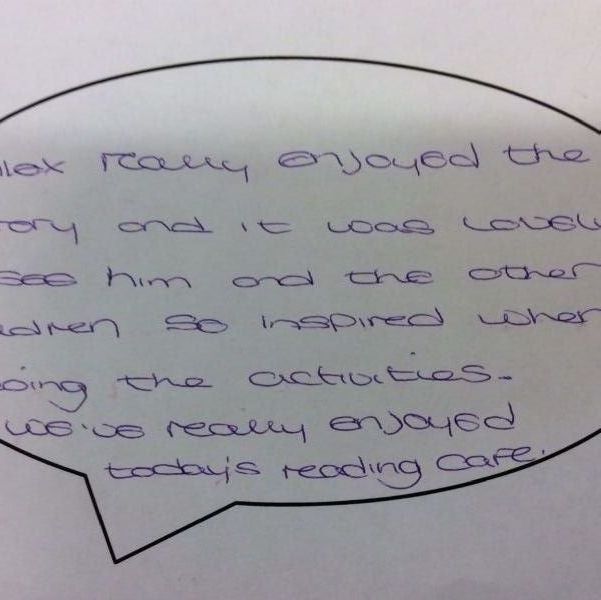 Alex really enjoyed the
tory and it was lovely
see him and the other
ildren so inspired when
oing the activities.
we've really enjoyed
today's reading cafe.